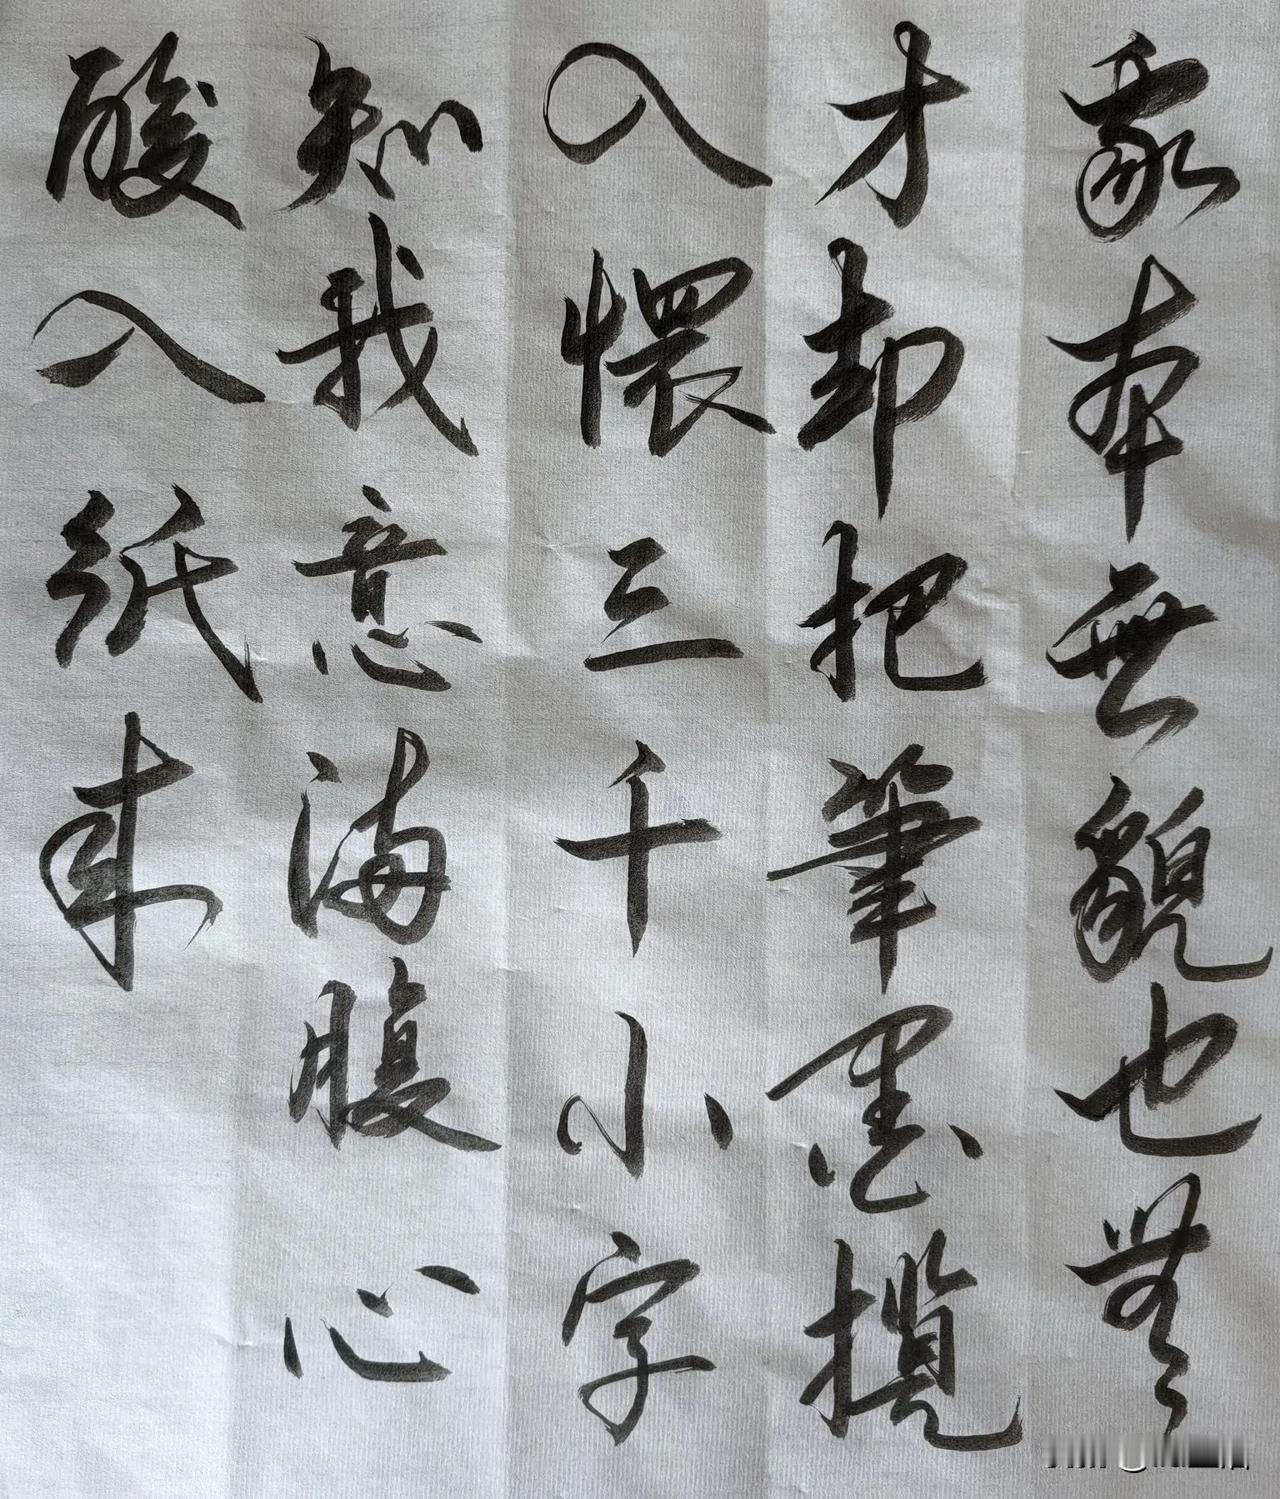 我本無貌也無
才却把筆墨攬
入懷三千小字
知我意滿腹心
酸入紙來